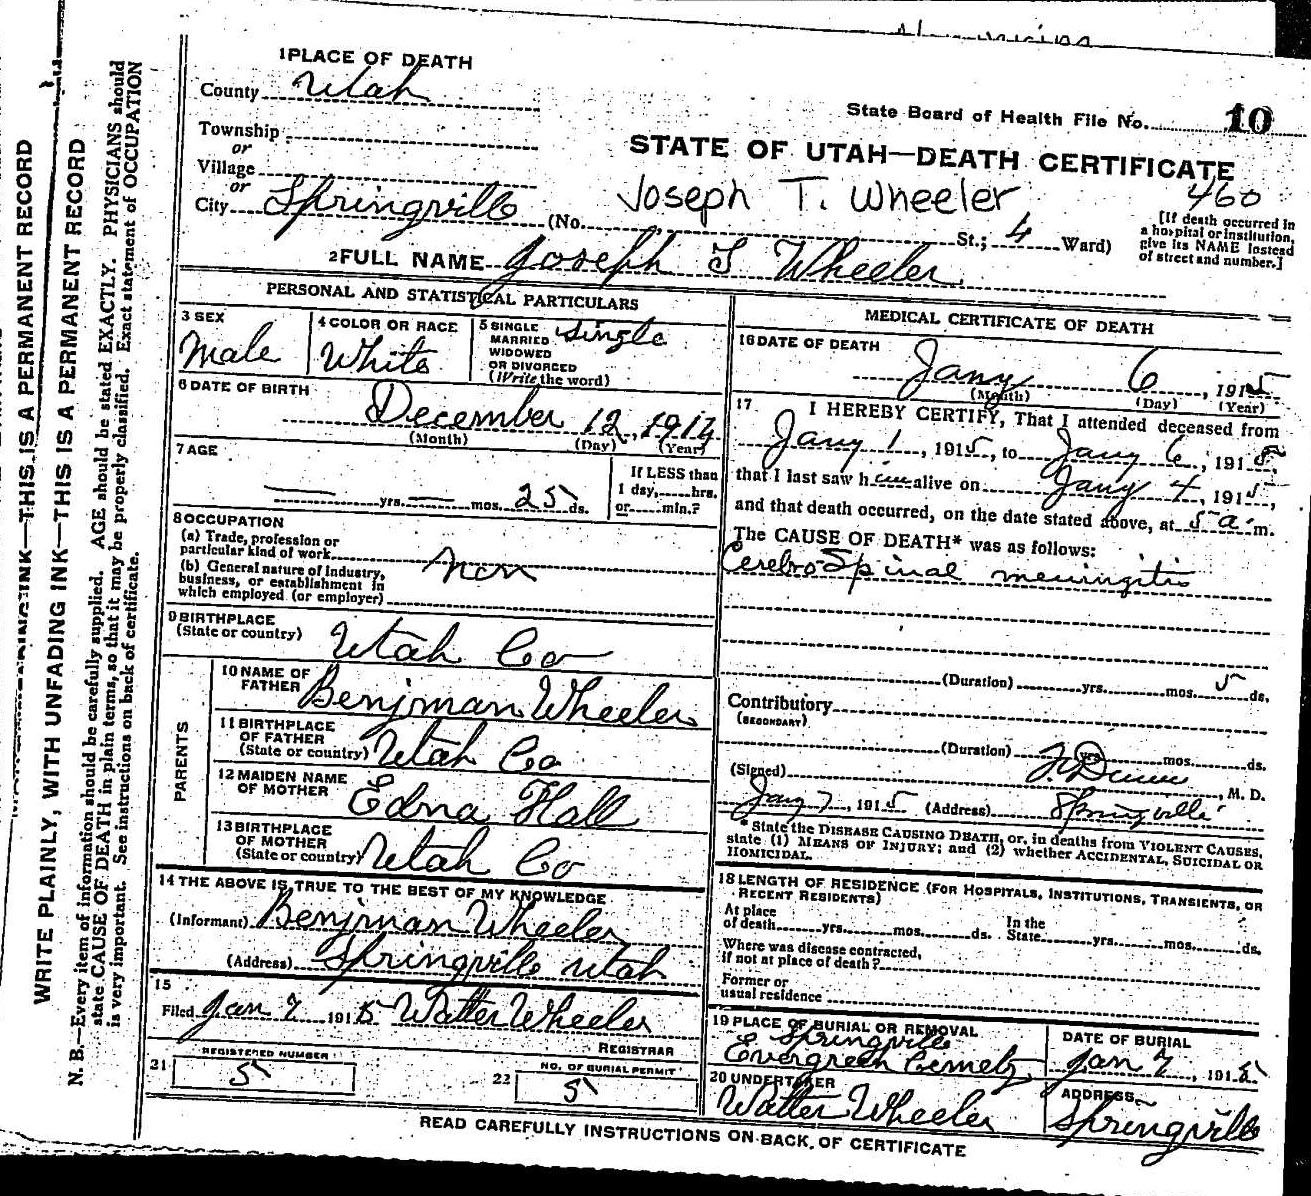 WRITE PLAINLY, WITH UNFADING INK—THIS IS A PERMANENT RECORD
N. B.—Every item of information should be carefully supplied. AGE should be stated EXACTLY. PHYSICIANS should
state CAUSE OF DEATH in plain terms, so that it may be properly classified. Exact statement of OCCUPATION
is very important. See instructions on back of certificate.
1 PLACE OF DEATH
County Utah
Township
or
Village
or
City Springville (No. St.; 4 Ward)
State Board of Health File No. 10
STATE OF UTAH—DEATH CERTIFICATE
Joseph T. Wheeler
460
[If death occurred in
a hospital or institution,
give its NAME instead
of street and number.]
2 FULL NAME Joseph T Wheeler
PERSONAL AND STATISTICAL PARTICULARS
3 SEX
Male
4 COLOR OR RACE
White
5 SINGLE
MARRIED
WIDOWED
OR DIVORCED
(Write the word)
Single
6 DATE OF BIRTH
December 12, 1914
(Month) (Day) (Year)
7 AGE
— yrs. — mos. 25 ds.
If LESS than
1 day, hrs.
or min.?
8 OCCUPATION
(a) Trade, profession or
particular kind of work
(b) General nature of Industry,
business, or establishment in
which employed (or employer)
non
9 BIRTHPLACE
(State or country) Utah Co
PARENTS
10 NAME OF
FATHER Benjman Wheeler
11 BIRTHPLACE
OF FATHER
(State or country) Utah Co
12 MAIDEN NAME
OF MOTHER Edna Hall
13 BIRTHPLACE
OF MOTHER
(State or country) Utah Co
14 THE ABOVE IS TRUE TO THE BEST OF MY KNOWLEDGE
(Informant) Benjman Wheeler
(Address) Springville Utah
15
Filed Jan 7 1915 Walter Wheeler
REGISTRAR
21 REGISTERED NUMBER
5
22 NO. OF BURIAL PERMIT
5
MEDICAL CERTIFICATE OF DEATH
16 DATE OF DEATH
Jany 6, 1915
(Month) (Day) (Year)
17 I HEREBY CERTIFY, That I attended deceased from
Jany 1, 1915, to Jany 6, 1915,
that I last saw him alive on Jany 4, 1915,
and that death occurred, on the date stated above, at 5 a. m.
The CAUSE OF DEATH* was as follows:
Cerebro Spinal meningitis
(Duration) yrs. mos. 5 ds.
Contributory
(SECONDARY)
(Duration) yrs. mos. ds.
(Signed) M. D.
Jany 7, 1915 (Address) Springville
* State the DISEASE CAUSING DEATH, or, in deaths from VIOLENT CAUSES,
state (1) MEANS OF INJURY; and (2) whether ACCIDENTAL, SUICIDAL OR
HOMICIDAL.
18 LENGTH OF RESIDENCE (FOR HOSPITALS, INSTITUTIONS, TRANSIENTS, OR
RECENT RESIDENTS)
At place
of death yrs. mos. ds. In the
State yrs. mos. ds.
Where was disease contracted,
if not at place of death?
Former or
usual residence
19 PLACE OF BURIAL OR REMOVAL
Springville
Evergreen Cemetry
DATE OF BURIAL
Jan 7, 1915
20 UNDERTAKER
Walter Wheeler
ADDRESS
Springville
READ CAREFULLY INSTRUCTIONS ON BACK OF CERTIFICATE